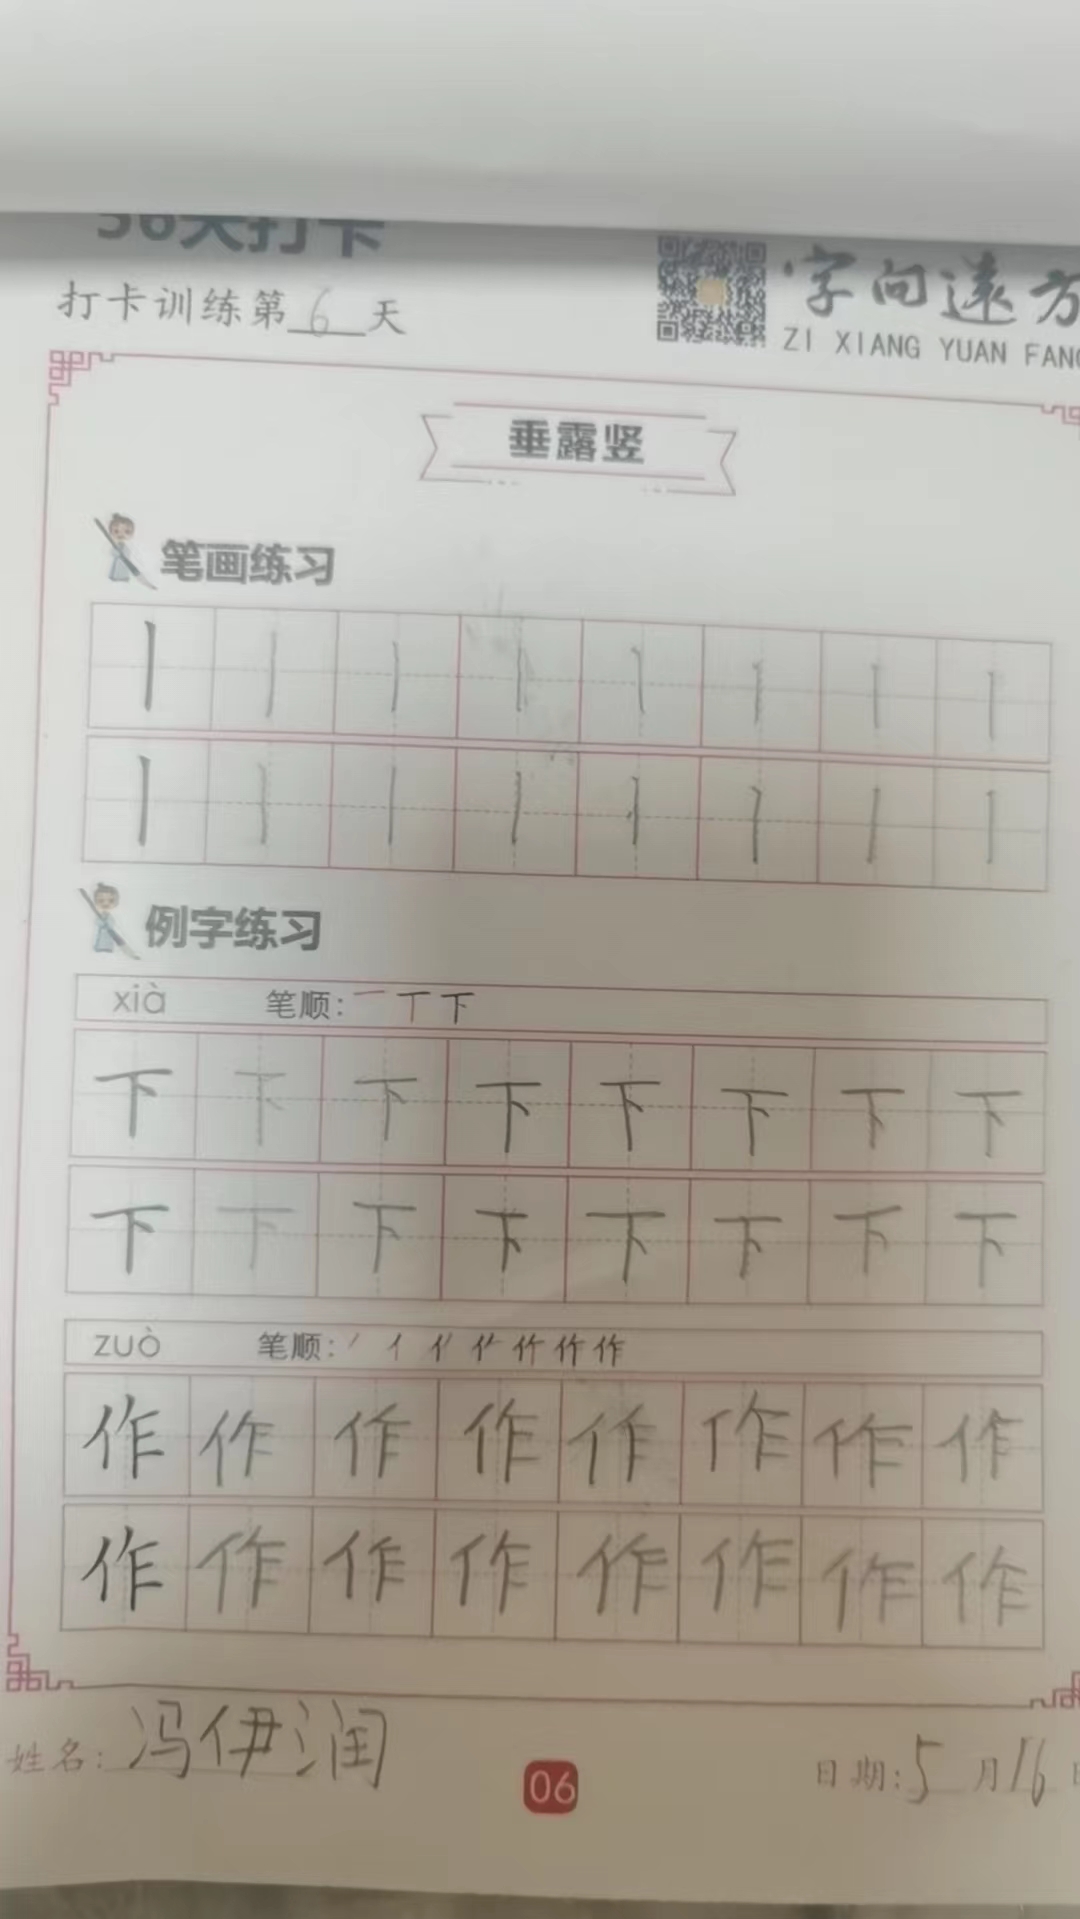 56天打卡
打卡训练第6天
字向远方
ZI XIANG YUAN FANG
垂露竖
笔画练习
丨丨丨丨丨丨丨丨
丨丨丨丨丨丨丨丨
例字练习
xià 笔顺：一丅下
下下下下下下下下
下下下下下下下下
zuò 笔顺：
作作作作作作作作
作作作作作作作作
姓名：冯伊润
06
日期：5月16日